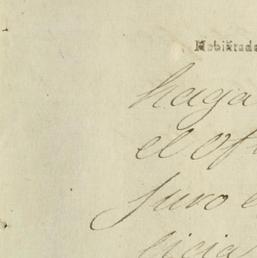 Habilitado
haga
el Of
juro e
licia